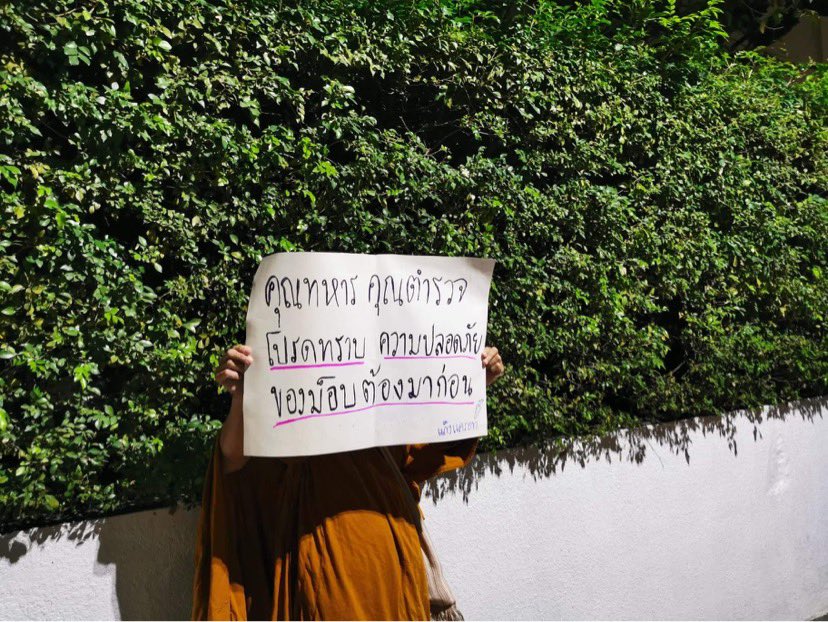 คุณทหาร คุณตำรวจ
โปรดทราบ ความปลอดภัย
ของม็อบ ต้องมาก่อน